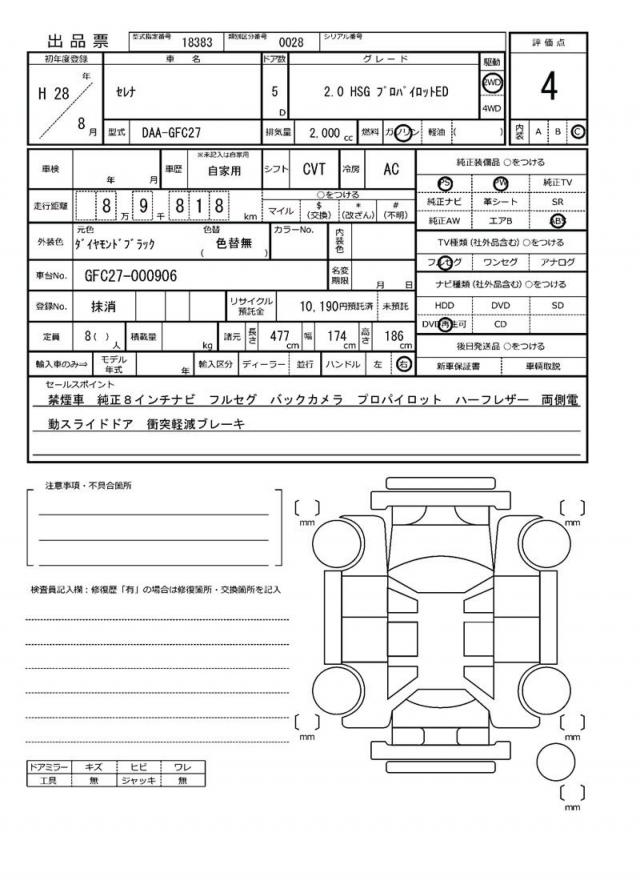 出品票 型式指定番号 18383 類別区分番号 0028 シリアル番号
評価点
4
内装 A B C
初年度登録 車名 ドア数 グレード 駆動
H 28 年 8 月 セレナ 5 D 2.0 HSG プロパイロットED 2WD 4WD
型式 DAA-GFC27 排気量 2,000 cc 燃料 ガソリン 軽油 ( )
車検 年 月 車歴 ※未記入は自家用 自家用 シフト CVT 冷房 AC
走行距離 8 万 9 千 8 1 8 km
○をつける
マイル $ (交換) * (改ざん) # (不明)
外装色 元色 ダイヤモンドブラック 色替 ( 色替無 ) カラーNo. 内装色
車台No. GFC27-000906 名変期限 月 日
登録No. 抹消 リサイクル預託金 10,190円預託済 未預託
定員 8( ) 人 積載量 kg 諸元 長さ 477 cm 幅 174 cm 高さ 186 cm
輸入車のみ⇒ モデル年式 年 輸入区分 ディーラー 並行 ハンドル 左 右
純正装備品 ○をつける
PS PW 純正TV
純正ナビ 革シート SR
純正AW エアB ABS
TV種類(社外品含む)○をつける
フルセグ ワンセグ アナログ
ナビ種類(社外品含む)○をつける
HDD DVD SD
DVD再生可 CD
後日発送品 ○をつける
新車保証書 車輌取説
セールスポイント
禁煙車 純正8インチナビ フルセグ バックカメラ プロパイロット ハーフレザー 両側電
動スライドドア 衝突軽減ブレーキ
注意事項・不具合箇所
検査員記入欄：修復歴「有」の場合は修復箇所・交換箇所を記入
mm
mm
mm
mm
mm
ドアミラー キズ ヒビ ワレ
工具 無 ジャッキ 無